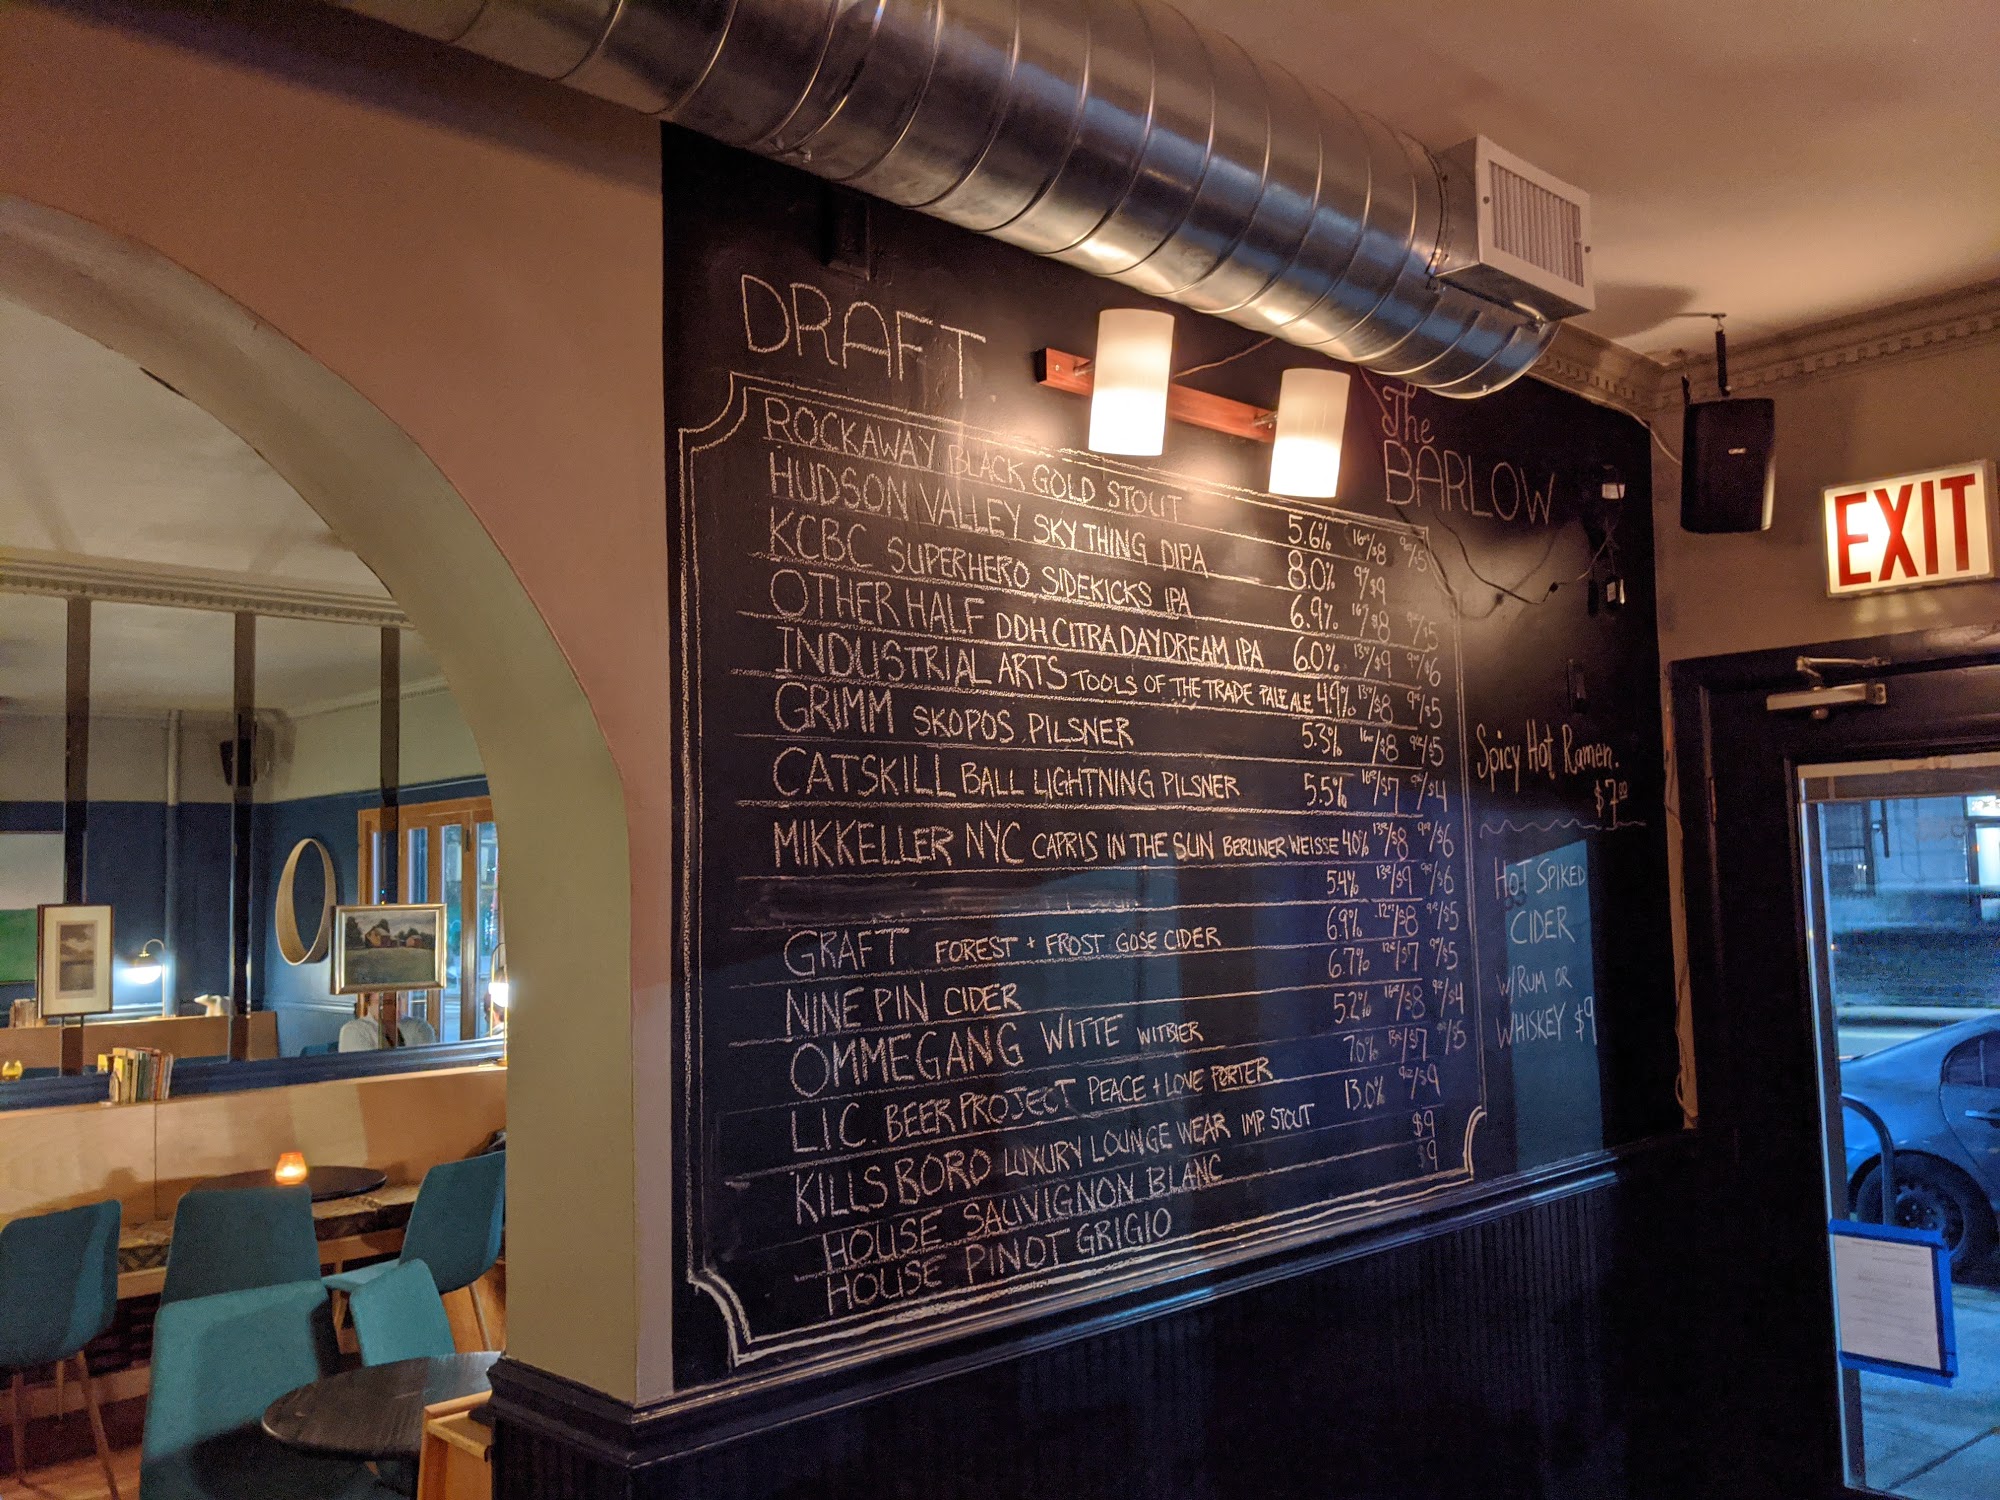 DRAFT
The
BARLOW
ROCKAWAY BLACK GOLD STOUT 5.6% 16oz/$8 9oz/$5
HUDSON VALLEY SKY THING DIPA 8.0% 9oz/$9
KCBC SUPERHERO SIDEKICKS IPA 6.9% 16oz/$8 9oz/$5
OTHER HALF DDH CITRA DAYDREAM IPA 6.0% 13oz/$9 9oz/$6
INDUSTRIAL ARTS TOOLS OF THE TRADE PALE ALE 4.9% 13oz/$8 9oz/$5
GRIMM SKOPOS PILSNER 5.3% 16oz/$8 9oz/$5
CATSKILL BALL LIGHTNING PILSNER 5.5% 16oz/$7 9oz/$4
MIKKELLER NYC CAPRIS IN THE SUN BERLINER WEISSE 4.0% 13oz/$8 9oz/$6
5.4% 13oz/$9 9oz/$6
GRAFT FOREST + FROST GOSE CIDER 6.9% 12oz/$8 9oz/$5
NINE PIN CIDER 6.7% 12oz/$7 9oz/$5
OMMEGANG WITTE WITBIER 5.2% 16oz/$8 9oz/$4
L.I.C. BEER PROJECT PEACE + LOVE PORTER 7.0% 13oz/$7 9oz/$5
KILLSBORO LUXURY LOUNGE WEAR IMP. STOUT 13.0% 9oz/$9
HOUSE SAUVIGNON BLANC $9
HOUSE PINOT GRIGIO $9
Spicy Hot Ramen.
$7.00
HOT SPIKED
CIDER
W/RUM OR
WHISKEY $9
EXIT